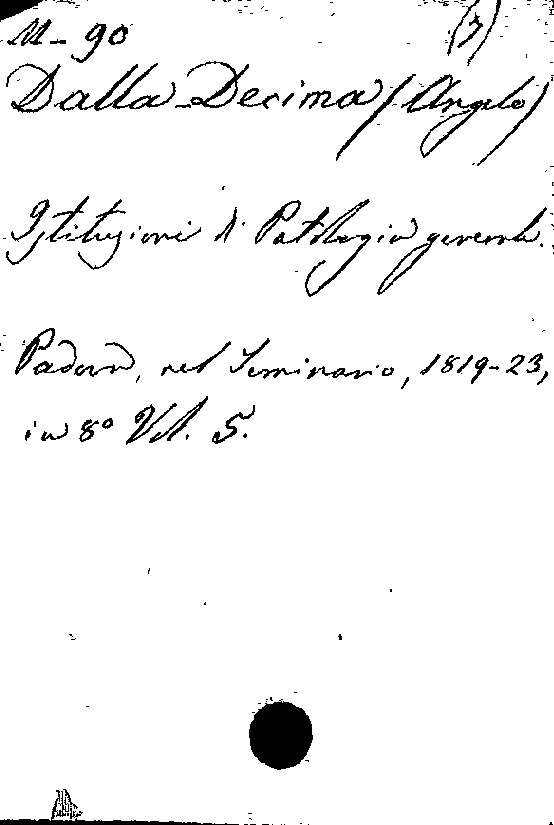 M-90 (3)
Dalla-Decima (Angelo)
Istituzioni di Patologia generale.
Padova, nel Seminario, 1819-23,
in 8° Vol. 5.